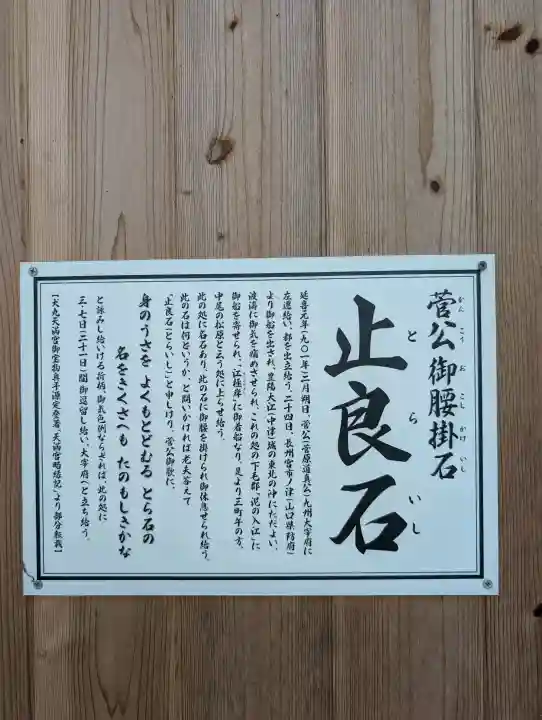 菅公御腰掛石
かんこうおこしかけいし
止良石
とらいし
延喜元年(九〇一年)二月朔日、菅公(菅原道真公)九州大宰府に
左遷給い、都を出立給う、二十四日、長州宮市ノ津(山口県防府)
より御船を出され、豊陽大江(中津)城の東北の沖にただよい、
波濤に御気を痛めさせられ、これの処の下毛郡、「泥の入江」に
御船を寄せられ、「江極岸」に御着船なり、是より三町年の方、
中尾の松原と云う処に上らせ給う。
此の処に名石あり、此の石に御腰を掛けられ御休息せられ給う。
此の石は何というか、と問いかければ老夫答えて
「止良石(とらいし)」と申しけり、菅公御歌に、
身のうさを よくもとどむる とら石の
名をきくさへも たのもしきかな
と詠みし給いける折柄、御気色例ならざれば、此の処に
三・七日(二十一日)間御逗留し給い、大宰府へと立ち給う。
【大丸天満宮御宝物真平源定登著、天満宮略縁記」より部分転載】